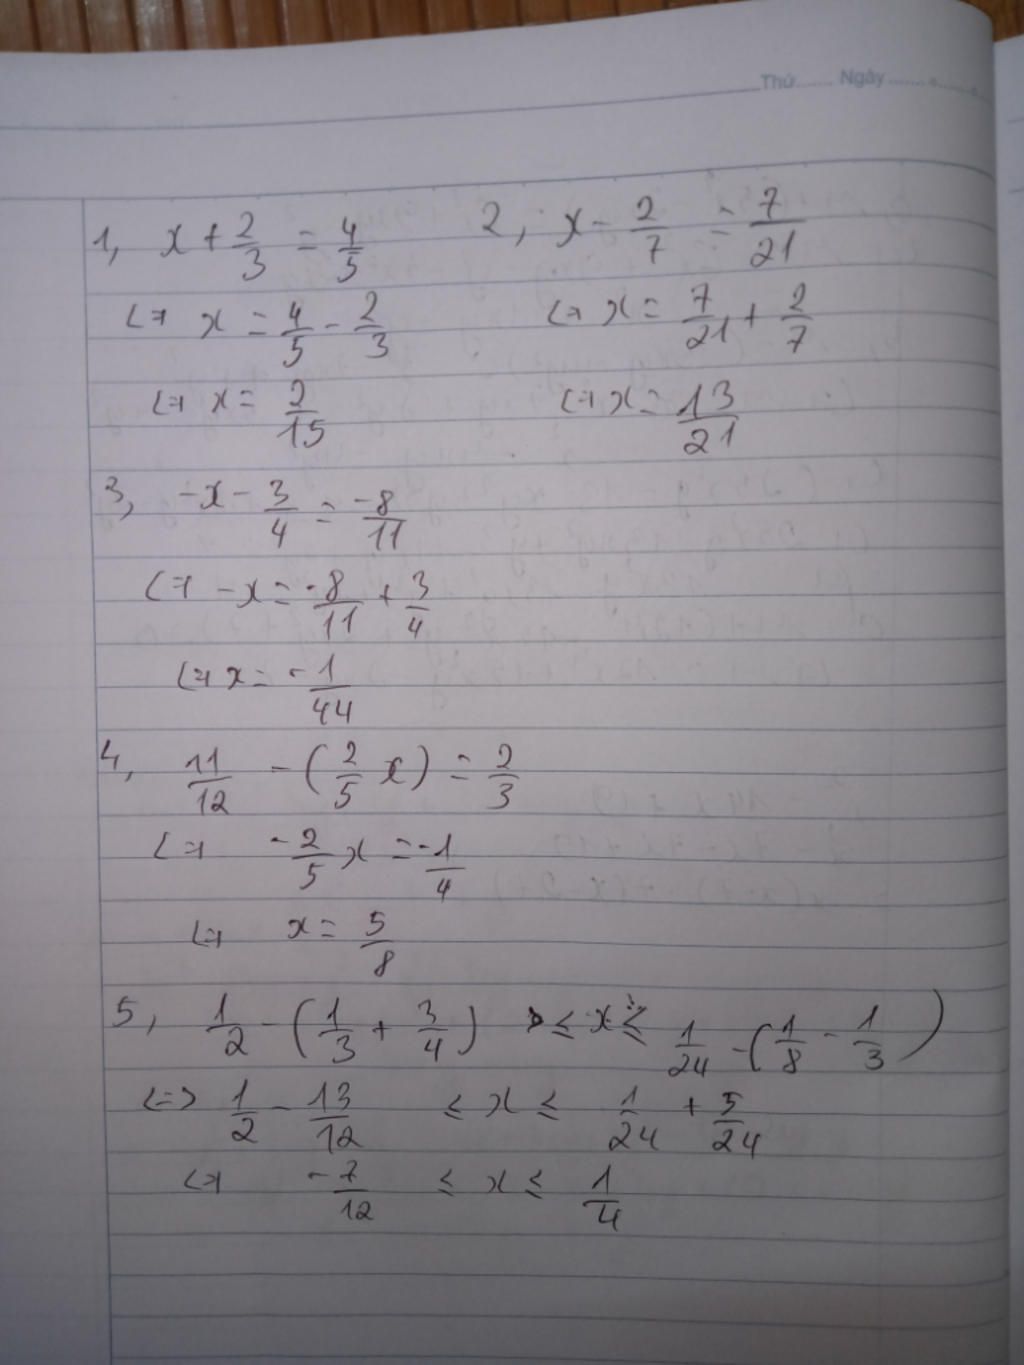 Thứ....... Ngày.......
1, x + 2/3 = 4/5
<=> x = 4/5 - 2/3
<=> x = 2/15
2, x - 2/7 = 7/21
<=> x = 7/21 + 2/7
<=> x = 13/21
3, -x - 3/4 = -8/11
<=> -x = -8/11 + 3/4
<=> x = -1/44
4, 11/12 - (2/5 x) = 2/3
<=> -2/5 x = -1/4
<=> x = 5/8
5, 1/2 - (1/3 + 3/4) ≤ x ≤ 1/24 - (1/8 - 1/3)
<=> 1/2 - 13/12 ≤ x ≤ 1/24 + 5/24
<=> -7/12 ≤ x ≤ 1/4